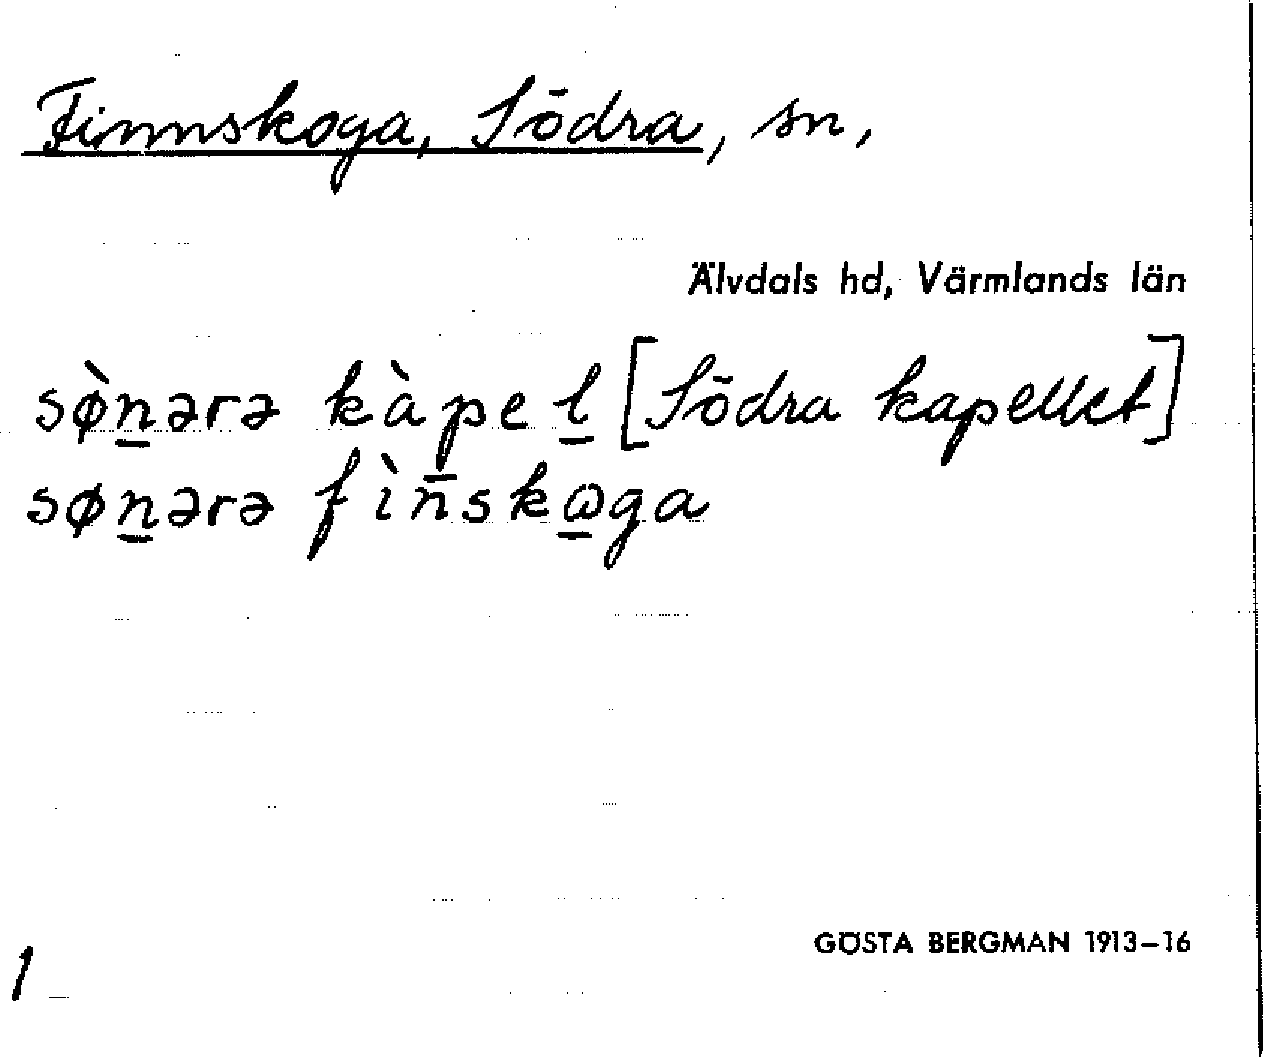 Finnskoga, Södra, sn,
Älvdals hd, Värmlands län
sø̀n̲ərə kàpel̲ [Södra kapellet]
søn̲ərə fìn̄skω̲ga
GÖSTA BERGMAN 1913–16
1